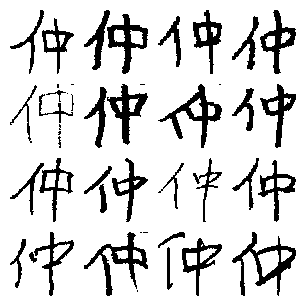 仲仲仲仲
仲仲仲仲
仲仲仲仲
仲仲仲仲